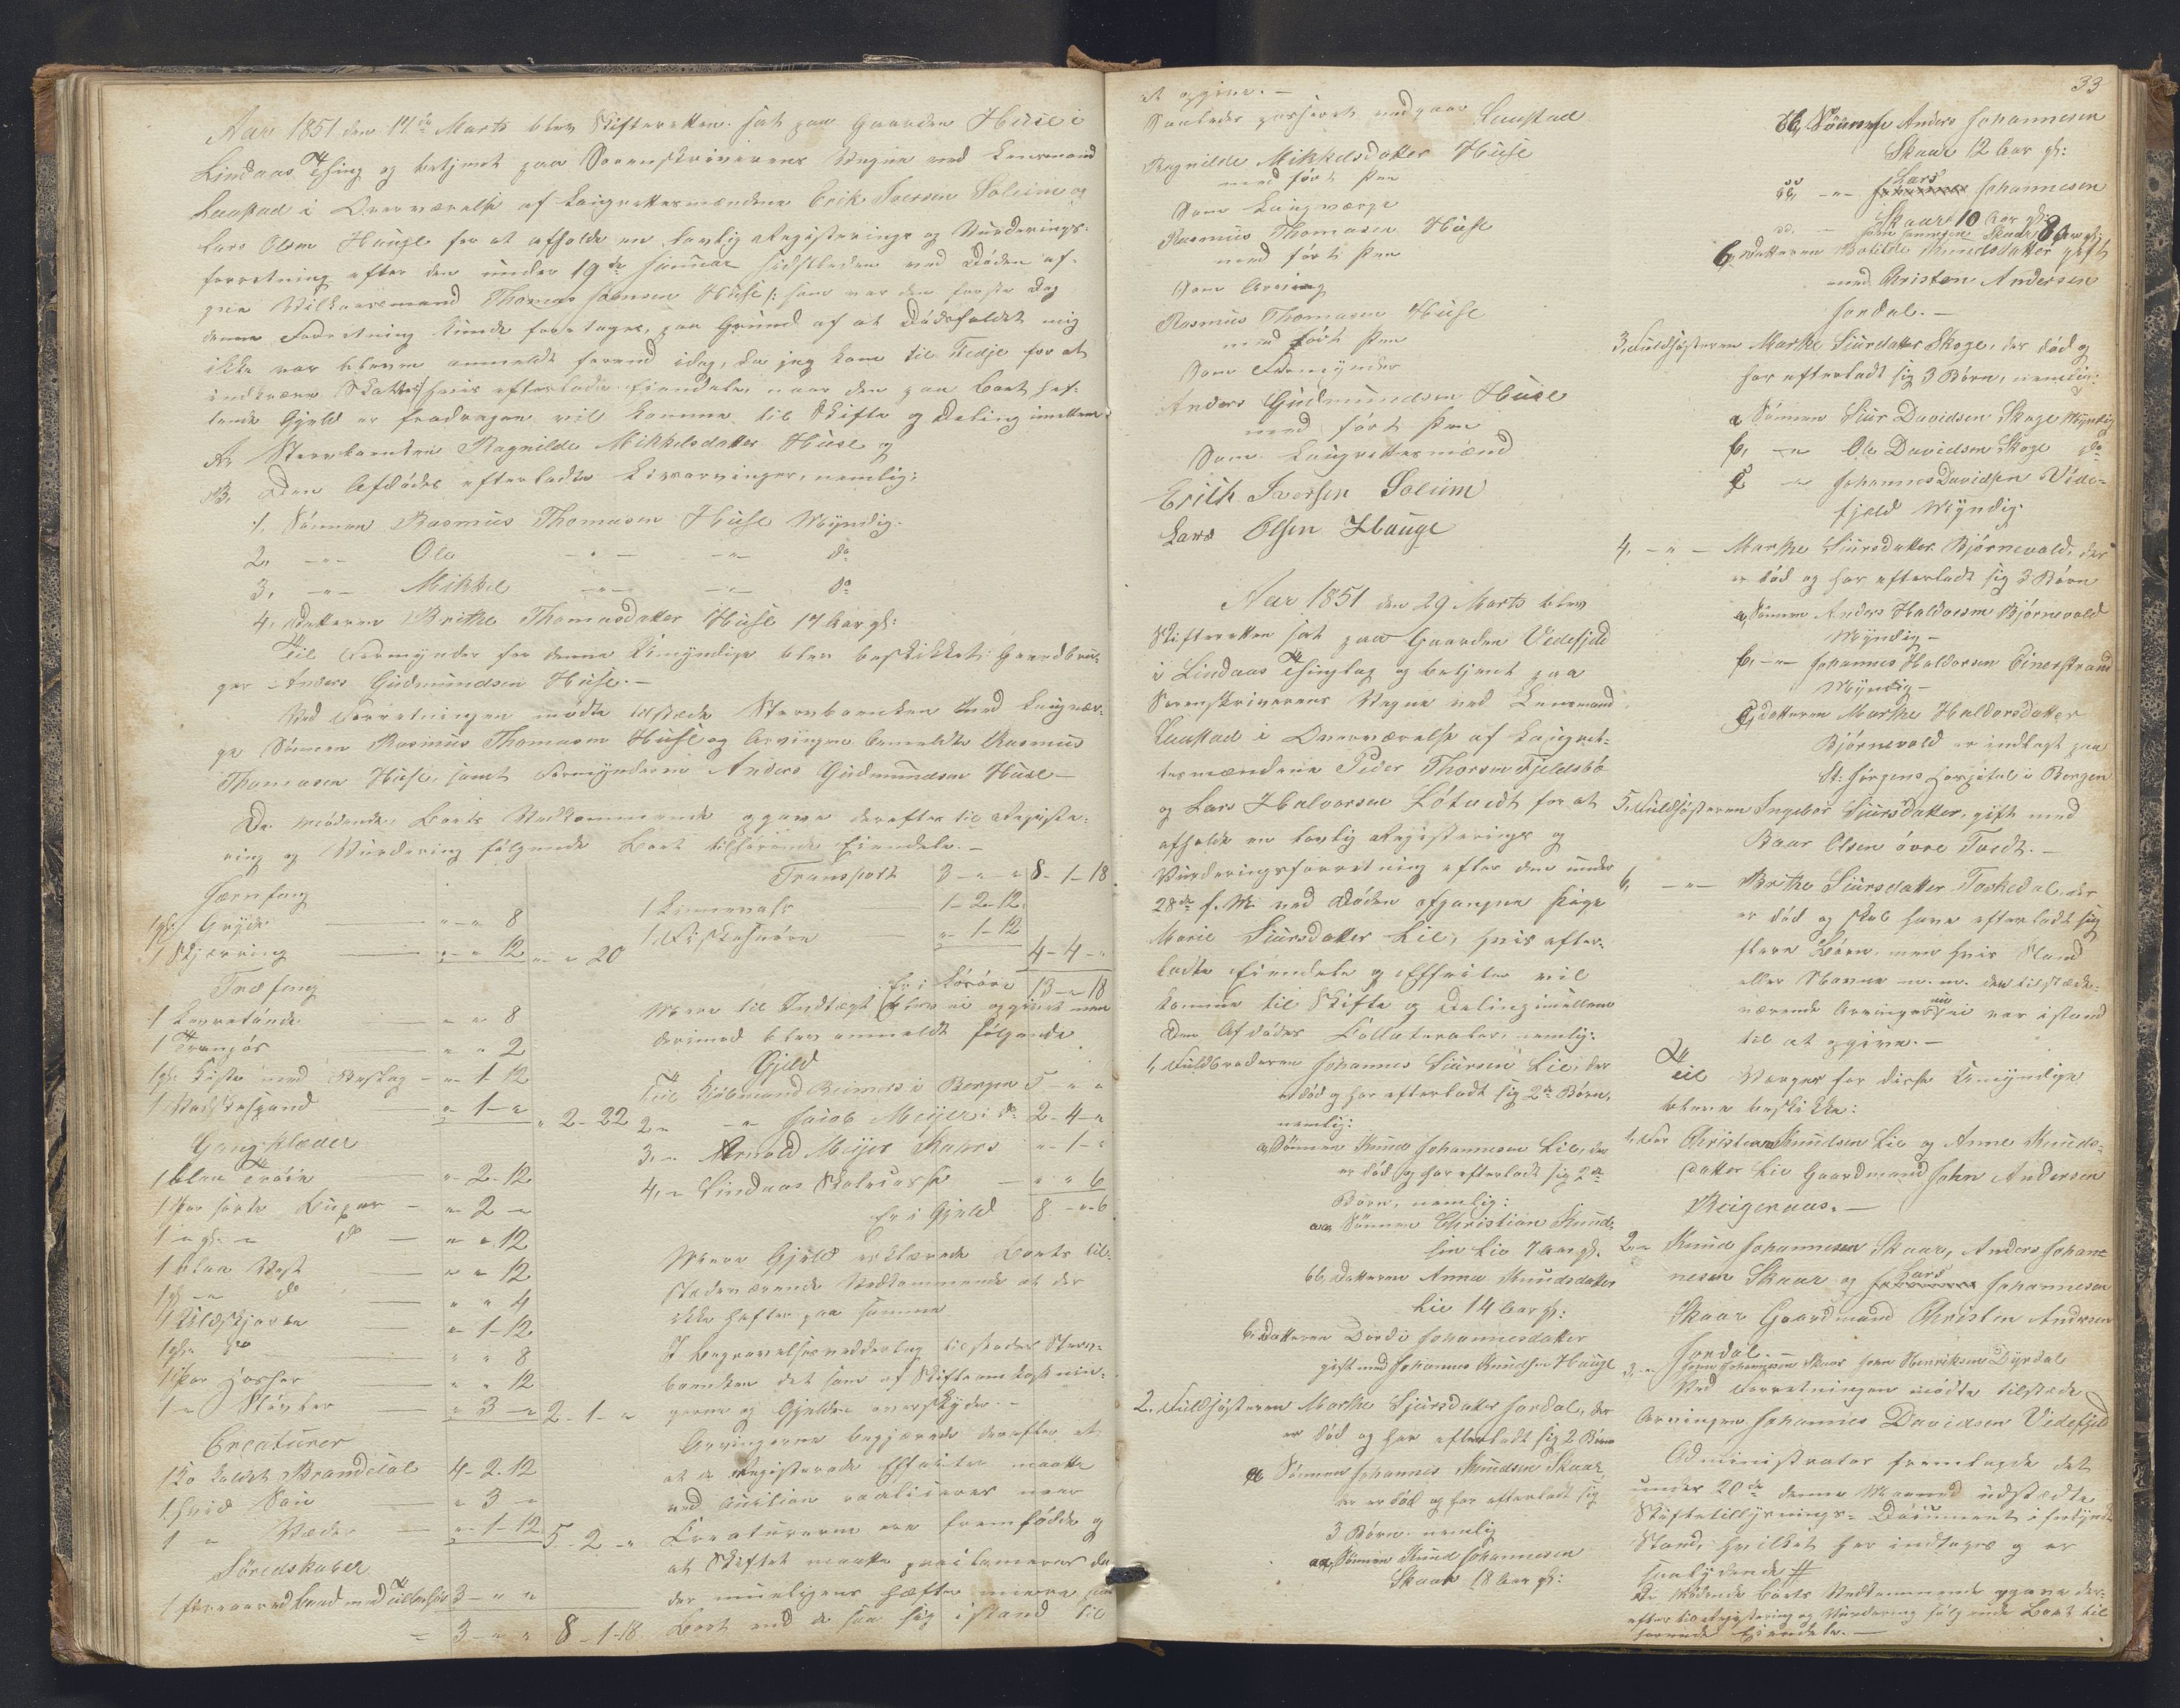 Aar 1851 den 17de Marts blev Skifteretten sat paa Gaarden Huse i
Lindaas Thinglag og betjent paa Sorenskriverens Vegne ved Lensmand
Laustad i Overværelse af Laugrettesmændene Erik Iversen Soleim og
Lars Olsen Hauge for at afholde en lovlig Registerings og Vurderings-
forretning efter den under 19de Januar sidstleden ved Døden af-
gne Vilkaarsmand Thomas Hansen Huse /: som var den første Dag
denne Forretning kunde foretages, paa Grund af at Dødsfaldet mig
ikke var bleven anmeldt forend idag, da jeg kom til Fedje for at
indkræve Skatter :/ hvis efterladte Eiendele, naar den paa Boet hef-
tende Gjeld er fradragen vil komme til Skifte og Deling imellem
A, Stervboenken Ragnilde Mikkelsdatter Huse og
B, Den Afdødes efterladte Livsarvinger, nemlig:
1, Sønnen Rasmus Thomasen Huse Myndig.
2, -"- Ole -"- -"- do
3, -"- Mikkel -"- -"- do
4, Datteren Brithe Thomasdatter Huse 17 Aar gl:
Til Formynder for denne Umyndige blev beskikket: Gaardbru-
ger Anders Gudmundsen Huse.-
Ved Forretningen mødte tilstede Stervboenken med Laugvær-
ge Sønnen Rasmus Thomasen Huse og Arvingen bemeldte Rasmus
Thomasen Huse, samt Formynderen Anders Gudmundsen Huse -
De mødende Boets Vedkommende opgave derefter til Registe-
ring og Vurdering følgende Boet tilhørende Eiendele. -
Jernfang
1 gl: Gryde " " 8
1 Skjærring " " 12 " " 20
Træfang
1 Levretønde " " 8
1 " " 2
1 gl: Kiste med Beslag " 1 12
1 " 1 " " 2-22
Gangklæder
1 blaa Trøie " 2-12
1 Par sorte Buxer " 2 "
1 " gl: " do " " 12
1 blaa Vest " " 12
1 gl: " do " " 4
1 Uldskjorte " 1-12
1 gl: do " " 8
1 Par Hoser " " 12
1 " Støvler " 3 " 2-1-"
Creaturer
1 Ko kaldet Brandelal 4-2-12
1 hvid Sou " 3 "
1 " Væder " 1-12 5-2-"
Søredskaber
1 færaaret Baad med Tilbehør 3 " "
= 3 " " 8-1-18
Transport 3 " " 8-1-18
1 1-2-12
1 Fiskesnøre " 1-12
4-4-"
Er i Løsøre 13-"-18
Mere til Indtægt blev ei opgivet men
derimod blev anmeldt følgende
Gjeld
Til Kjøbmand Reimers i Bergen 5 " "
2 " -"- Jacob Meyer i do 2-4-"
3, " Arnold Meyer Kaars " 1-"
4, " Lindaas Skolecasse " " 6
Er i Gjeld 8-"-6
Mere Gjeld erklærede Boets til-
stedeværende Vedkommende at der
ikke hefter paa samme
I Begravelsesvederlag tilstodes Sterv-
boenken det som af Skifteomkostnin-
gerne og Gjelden overskyder. -
Arvingerne begjærede derefter at
at de Registerede Effecter maatte
ved Auction realiseres naar
Creaturerne ere fremfødde og
at Skiftet maatte proclameres da
der mueligens hæfter mere paa
Boet end de saa sig istand til
at opgive. -
Saaledes passeret vedgaaer Laustad
Ragnilde Mikkelsdatter Huse
med ført Pen
Som Laugværge
Rasmus Thomasen Huse
med ført Pen
Som Arving
Rasmus Thomasen Huse
med ført Pen
Som Formynder
Anders Gudmundsen Huse
med ført Pen
Som Laugrettesmænd
Erich Iversen Soleim
Lars Olsen Hauge
Aar 1851 den 29 Marts blev
Skifteretten sat paa Gaarden Videfjeld
i Lindaas Thinglag og betjent paa
Sorenskriverens Vegne ved Lensmand
Laustad i Overværelse af Laugret-
tesmændene Peder Thorsen Fjeldsbø
og Lars Halvorsen Løtvedt for at
afholde en lovlig Registerings og
Vurderingsforretning efter den under
28de f. M. ved Døden afgangne Pige
Marie Siursdatter Lie, hvis efter-
ladte Eiendele og Effecter vil
komme til Skifte og Deling imellem
Den Afdødes Collateraler, nemlig:
1, Fuldbroderen Johannes Siursen Lie, der
er død og har efterladt sig 2de Børn,
nemlig:
a, Sønnen Knud Johannesen Lie, der
er død og har efterladt sig 2de
Børn, nemlig:
aa, Sønnen Christian Knud-
sen Lie 7 Aar gl.
bb, Datteren Anna Knudsdatter
Lie 14 Aar gl:
b, Datteren Dordi Johannesdatter
gift med Johannes Knudsen Hauge
2, Fuldsøsteren Marthe Sjursdatter Fordal, der
er død og har efterladt sig 2 Børn
a, Sønnen Johannes Knudsen Skaar,
der er død og har efterladt sig
3 Børn nemlig
aa, Sønnen Knud Johannesen
Skaar 18 Aar gl:
33
bb, Sønnen Anders Johannesen
Skaar 12 Aar gl:
cc, -"- Lars Johannesen
Skaar 10 Aar gl:
dd, - Johannesen Skaar 8 Aar gl:
b, Datteren Botilde Knudsdatter gift
med Christen Andersen
Fordal. -
3, Fuldsøsteren Marthe Siursdatter Skoge, der død og
har efterladt sig 3 Børn, nemlig:
a Sønnen Siur Davidsen Skoge Myndig
b, -"- Ole Davidsen Skoge do
c -"- Johannes Davidsen Vide-
fjeld Myndig
4, -"- Marthe Siursdatter Bjørnevold, der
er død og har efterladt sig 3 Børn
a, Sønnen Anders Haldorsen Bjørnevold
Myndig -
b, -"- Johannes Haldorsen Einerstrand
Myndig -
c, Datteren Marthe Haldorsdatter
Bjørnevold er indlagt paa
St: Jørgens Hospital i Bergen
5, Fuldsøsteren Ingebor Sjursdatter, gift med
Baar Olsen øvre Tvedt. -
6, -"- Brithe Siursdatter Toskedal, der
er død og skal have efterladt sig
flere Børn, men hvis Stand
eller Navne m. m. den tilstede-
værende Arving ei var istand
til at opgive. -
Til Værger for disse Umyndige
bleve beskikke:
1, For Christian Knudsen Lie og Anne Knuds-
datter Lie Gaardmand John Andersen
Reigeraas. -
2, " Knud Johannesen Skaar, Anders Johan-
nesen Skaar og Lars Johannesen
Skaar Gaardmand Christen Andersen
Fordal. -
3, " Johannesen Skaar Henriksen Dyrdal
Ved Forretningen mødte tilstede
Arvingen Johannes Davidsen Videfjeld
Administrator fremlagde det
under 20de denne Maaned udstædte
Skiftetillysnings-Document i forkyndt
Stand, hvilket her indtages og er
saalydende #
De mødende Boets Vedkommende opgave der-
efter til Registering og Vurdering følgende Boet til-
hørende Eiendele. -